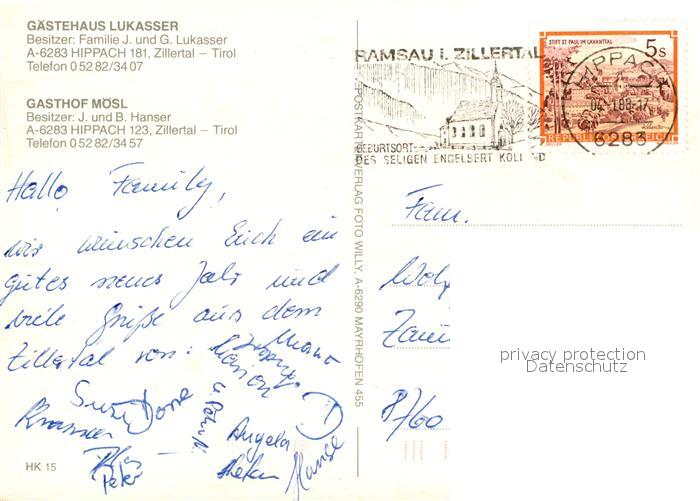 GÄSTEHAUS LUKASSER
Besitzer: Familie J. und G. Lukasser
A-6283 HIPPACH 181, Zillertal – Tirol
Telefon 0 52 82/34 07
GASTHOF MÖSL
Besitzer: J. und B. Hanser
A-6283 HIPPACH 123, Zillertal – Tirol
Telefon 0 52 82/34 57
Hallo Family,
wir wünschen Euch ein
gutes neues Jahr und
viele Grüße aus dem
Zillertal von:
Marion
Angela
Stefan
Peter
HK 15
POSTKARTENVERLAG FOTO WILLY, A-6290 MAYRHOFEN 455
RAMSAU I. ZILLERTAL
GEBURTSORT
DES SELIGEN ENGELBERT KOLLAND
STIFT ST. PAUL IM LAVANTTAL
5 S
REPUBLIK ÖSTERREICH
HIPPACH
6283
Fam.
8/60
privacy protection
Datenschutz